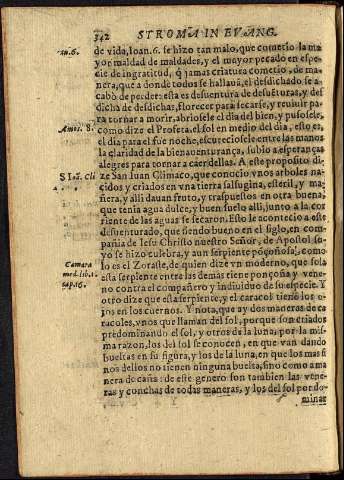 342 STROMA IN EVANG.
an. 6. de vida, Ioan. 6. se hizo tan malo, que cometio la ma
yor maldad de maldades, y el mayor pecado en espe
cie de ingratitud, q̃ jamas criatura cometio, de ma
nera, que a donde todos se hallarõ, el desdichado se a
cabò de perder: esta es desuentura de desuẽturas, y des
dicha de desdichas, florecer para secarse, y reuiuir pa
ra tornar a morir, abriosele el dia del bien, y pusosele,
Amos. 8. como dize el Profeta, el sol en medio del dia, esto es,
el dia para el fue noche, escureciosele entre las manos
la claridad de la bienauenturança, subio a esperanças
alegres para tornar a caer dellas. A este proposito di-
S Iuã. Cli ze San Iuan Climaco, que conocio vnos arboles na-
cidos y criados en vna tierra salsugina, esteril, y ma
ñera, y alli dauan fruto, y traspuestos en otra buena,
que tenia agua dulce, y buen suelo alli, junto a la cor
riente de las aguas se secaron. Esto le acontecio a este
desuenturado, que siendo bueno en el siglo, en com-
pañia de Iesu Christo nuestro Señor, de Apostol su-
yo se hizo culebra, y aun serpiente põçoñosa, como
Camara lo es el Zoraste, de quien dize vn moderno, que sola
med. lib. 1. esta serpiente entre las demas tiene ponçoña y vene-
cap. 16. no contra el compañero y indiuiduo de su especie. Y
otro dize que esta serpiente, y el caracol tienẽ los o-
jos en los cuernos. Y nota, que ay dos maneras de ca
racoles, vnos que llaman del sol, porque son criados
predominando el sol, y otros de la luna, por la mis-
ma razon, los del sol se conocen, en que van dando
bueltas en su figura, y los de la luna, en que los mas fi
nos dellos no tienen ninguna buelta, sino como a ma
nera de caña: de este genero son tambien las vene-
ras y conchas de todas maneras, y los del sol por do-
minar